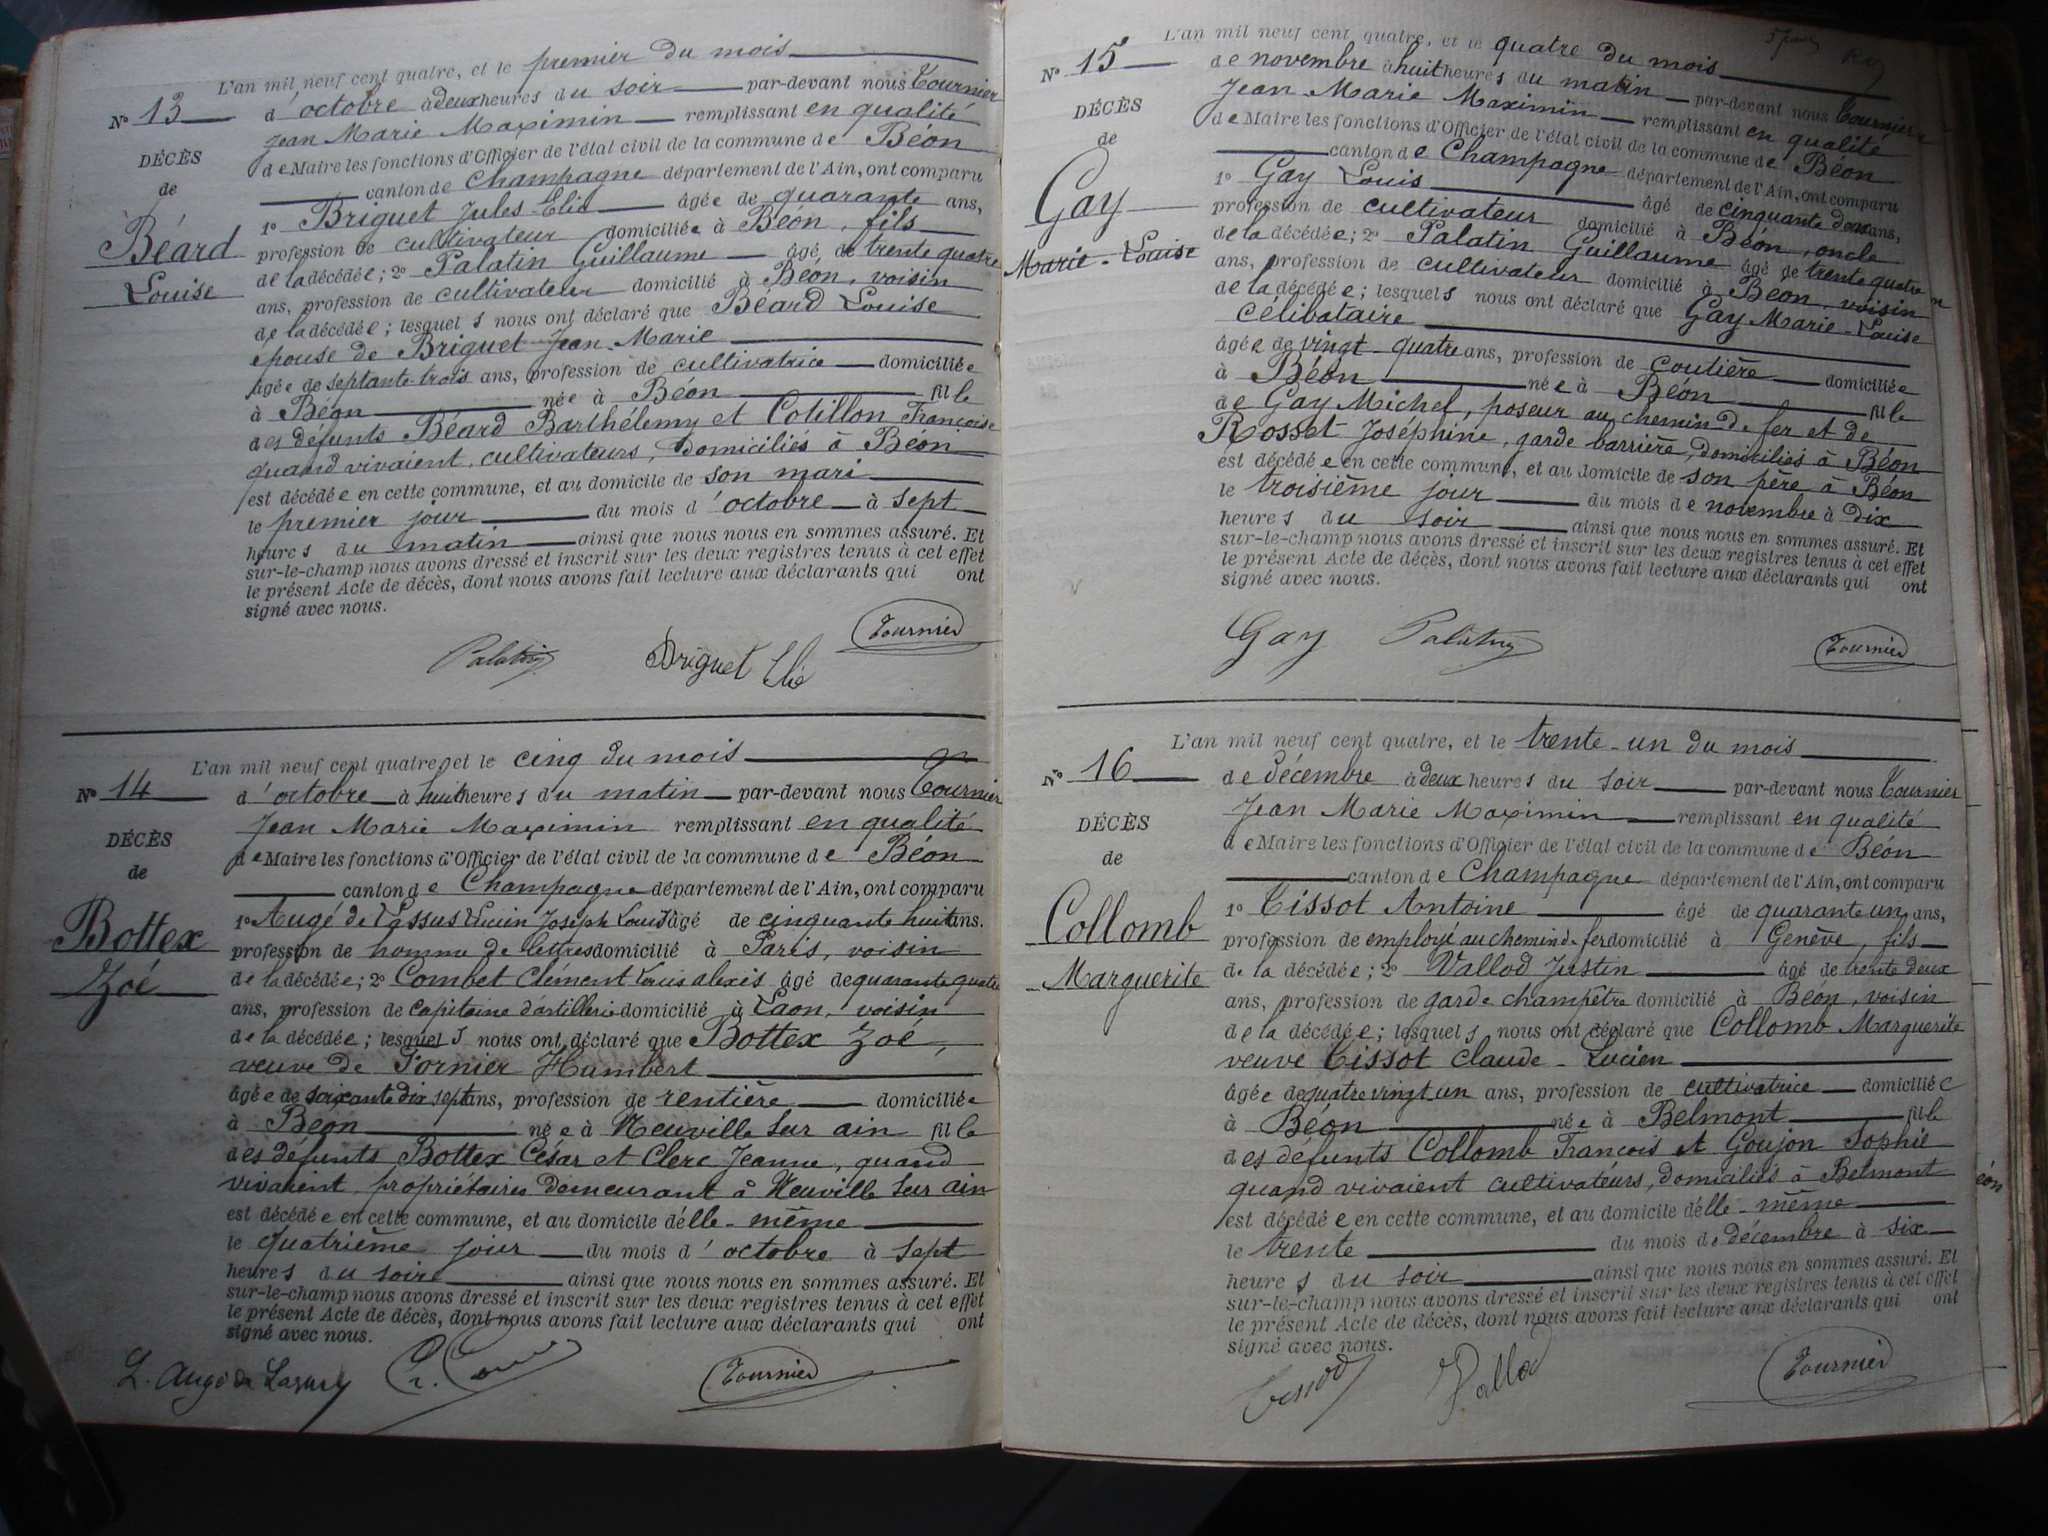 L'an mil neuf cent quatre, et le premier du mois
N° 13
d'octobre à deux heures du soir par-devant nous Tournier
Jean Marie Maximin remplissant en qualité
DÉCÈS
de Maire les fonctions d'Officier de l'état civil de la commune de Béon
de
canton de Champagne département de l'Ain, ont comparu
1° Briguet Jules Elie âgé de quarante ans,
Béard
profession de cultivateur domicilié à Béon, fils
de la décédée; 2° Palatin Guillaume âgé de trente quatre
Louise
ans, profession de cultivateur domicilié à Béon, voisin
de la décédée; lesquels nous ont déclaré que Béard Louise
épouse de Briguet Jean Marie
âgée de septante-trois ans, profession de cultivatrice domiciliée
à Béon née à Béon fille
des défunts Béard Barthélemy et Cotillon Françoise
quand vivaient, cultivateurs, domiciliés à Béon
est décédée en cette commune, et au domicile de son mari
le premier jour du mois d'octobre à sept
heures du matin ainsi que nous nous en sommes assuré. Et
sur-le-champ nous avons dressé et inscrit sur les deux registres tenus à cet effet
le présent Acte de décès, dont nous avons fait lecture aux déclarants qui ont
signé avec nous.
Palatin Briguet Elie Tournier
L'an mil neuf cent quatre, et le cinq du mois
N° 14
d'octobre à huit heures du matin par-devant nous Tournier
Jean Marie Maximin remplissant en qualité
DÉCÈS
de Maire les fonctions d'Officier de l'état civil de la commune de Béon
de
canton de Champagne département de l'Ain, ont comparu
1° Augé de Lassus Lucien Joseph Louis âgé de cinquante huit ans.
Bottex
profession de homme de lettres domicilié à Paris, voisin
Zoé
de la décédée; 2° Combet Clément Louis alexis âgé de quarante quatre
ans, profession de capitaine d'artillerie domicilié à Laon, voisin
de la décédée; lesquels nous ont déclaré que Bottex Zoé,
veuve de Fornier Humbert
âgée de soixante dix sept ans, profession de rentière domiciliée
à Béon née à Neuville sur ain fille
des défunts Bottex César et Clerc Jeanne, quand
vivaient, propriétaires demeurant à Neuville sur ain
est décédée en cette commune, et au domicile d'elle-même
le quatrième jour du mois d'octobre à sept
heures du soire ainsi que nous nous en sommes assuré. Et
sur-le-champ nous avons dressé et inscrit sur les deux registres tenus à cet effet
le présent Acte de décès, dont nous avons fait lecture aux déclarants qui ont
signé avec nous.
L. Augé de Lassus Tournier
L'an mil neuf cent quatre, et le quatre du mois
N° 15
de novembre à huit heures du matin par-devant nous Tournier
Jean Marie Maximin remplissant en qualité
DÉCÈS
de Maire les fonctions d'Officier de l'état civil de la commune de Béon
de
canton de Champagne département de l'Ain, ont comparu
1° Gay Louis âgé de cinquante deux ans,
Gay
profession de cultivateur domicilié à Béon, oncle
Marie-Louise
de la décédée; 2° Palatin Guillaume âgé de trente quatre
ans, profession de cultivateur domicilié à Béon, voisin
de la décédée; lesquels nous ont déclaré que Gay Marie-Louise
Célibataire
âgée de vingt-quatre ans, profession de coutière domiciliée
à Béon née à Béon fille
de Gay Michel, poseur au chemin de fer et de
Rosset Joséphine, garde barrière, domiciliés à Béon
est décédée en cette commune, et au domicile de son père à Béon
le troisième jour du mois de novembre à dix
heures du soir ainsi que nous nous en sommes assuré. Et
sur-le-champ nous avons dressé et inscrit sur les deux registres tenus à cet effet
le présent Acte de décès, dont nous avons fait lecture aux déclarants qui ont
signé avec nous.
Gay Palatin Tournier
L'an mil neuf cent quatre, et le trente-un du mois
N° 16
de décembre à deux heures du soir par-devant nous Tournier
Jean Marie Maximin remplissant en qualité
DÉCÈS
de Maire les fonctions d'Officier de l'état civil de la commune de Béon
de
canton de Champagne département de l'Ain, ont comparu
1° Tissot Antoine âgé de quarante un ans,
Collomb
profession de employé au chemin de fer domicilié à Genève, fils
Marguerite
de la décédée; 2° Vallod Justin âgé de trente deux
ans, profession de garde champêtre domicilié à Béon, voisin
de la décédée; lesquels nous ont déclaré que Collomb Marguerite
veuve Tissot Claude-Lucien
âgée de quatre vingt un ans, profession de cultivatrice domiciliée
à Béon née à Belmont fille
des défunts Collomb Francois et Goujon Sophie
quand vivaient cultivateurs, domiciliés à Belmont
est décédée en cette commune, et au domicile d'elle-même
le trente du mois de décembre à six
heures du soir ainsi que nous nous en sommes assuré. Et
sur-le-champ nous avons dressé et inscrit sur les deux registres tenus à cet effet
le présent Acte de décès, dont nous avons fait lecture aux déclarants qui ont
signé avec nous.
Vallod Tournier